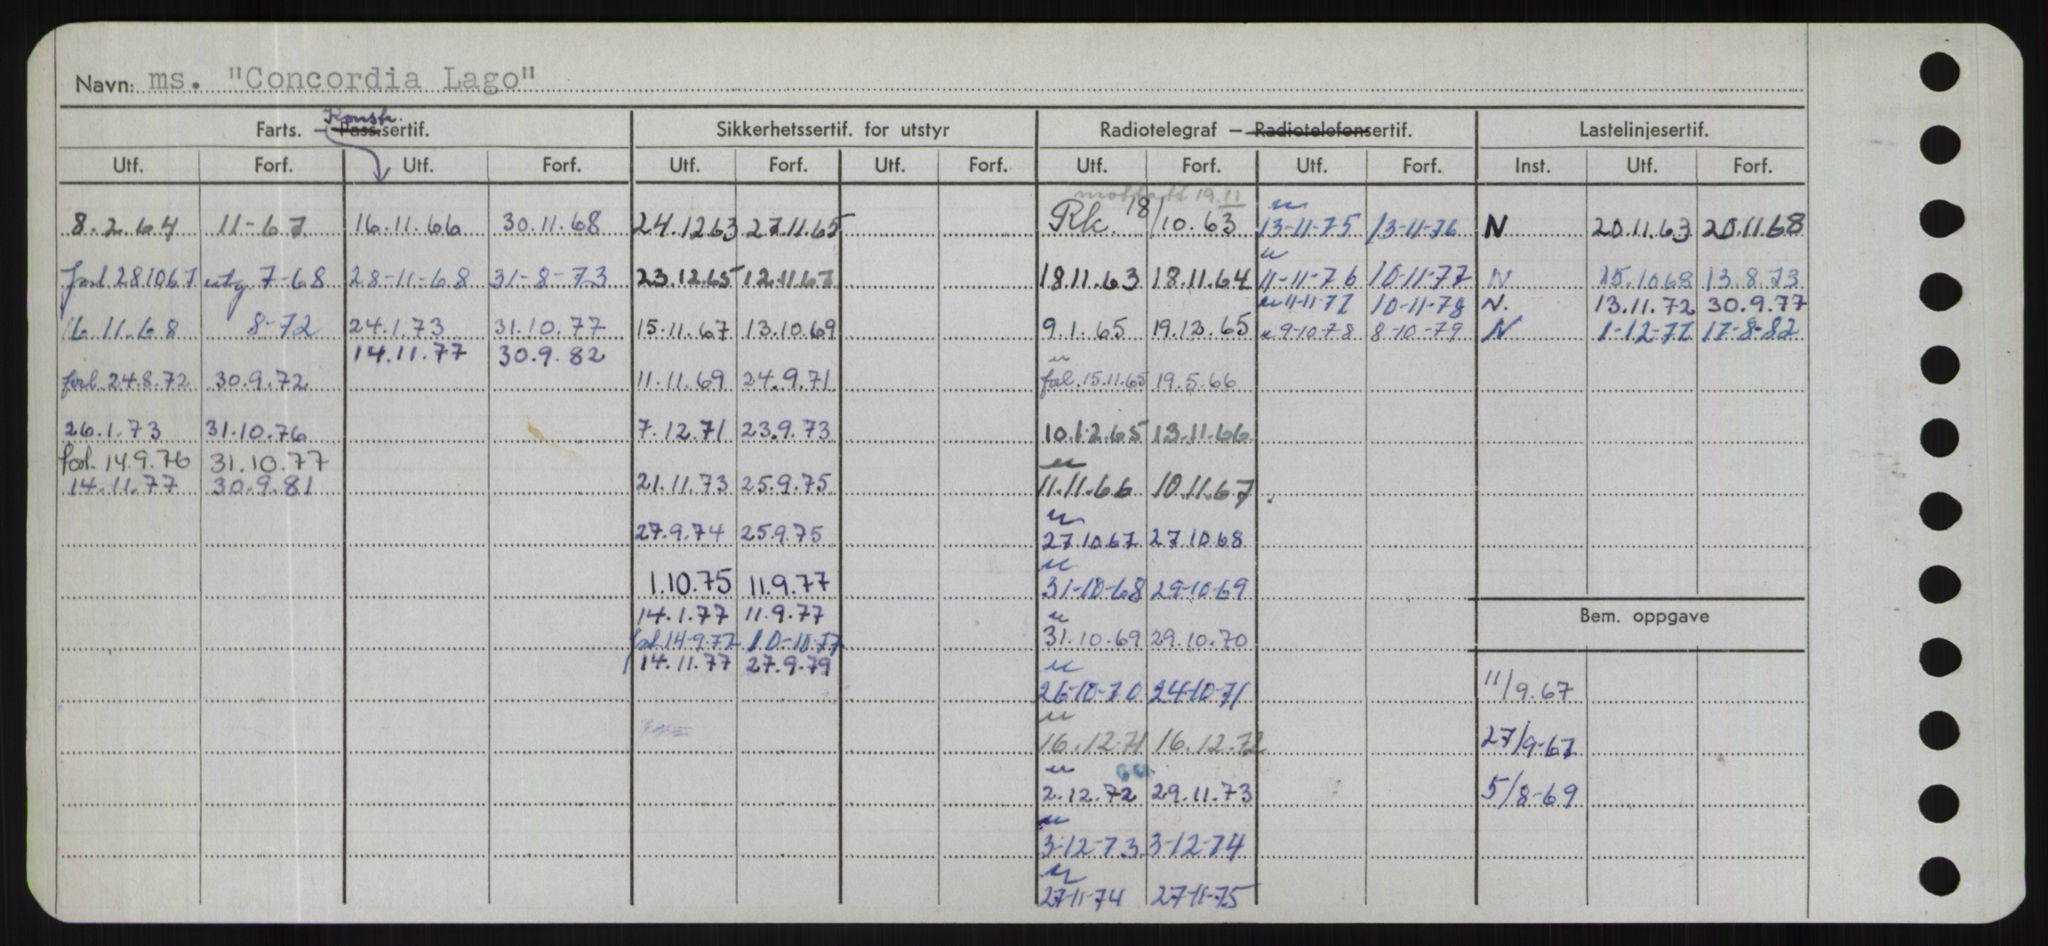 Navn: ms. "Concordia Lago"
Konstr.
Farts. – Pass.sertif. Sikkerhetssertif. for utstyr Radiotelegraf – Radiotelefonsertif. Lastelinjesertif.
Utf. Forf. Utf. Forf. Utf. Forf. Utf. Forf. Utf. Forf. Utf. Forf. Inst. Utf. Forf.
mottatt 19.11
8.2.64 11-67 16.11.66 30.11.68 24.12.63 27.11.65 Rk. 18/10.63 13-11-75 13-11-76 N 20.11.63 20.11.68
forl 281067 utg 7-68 28-11-68 31-8-73 23.12.65 12.11.67 18.11.63 18.11.64 11-11-76 10-11-77 N 15.10.68 13.8.73
u 11-11-77 10-11-78 N. 13.11.72 30.9.77
16.11.68 8-72 24.1.73 31.10.77 15.11.67 13.10.69 9.1.65 19.12.65 u 9-10-78 8-10-79 N 1-12-77 17-8-82
14.11.77 30.9.82
forl. 24.8.72 30.9.72 11.11.69 24.9.71 forl. 15.11.65 19.5.66
26.1.73 31.10.76 7.12.71 23.9.73 10.12.65 13.11.66
forl. 14.9.76 31.10.77
14.11.77 30.9.81 21.11.73 25.9.75 11.11.66 10.11.67
27.9.74 25.9.75 27.10.67 27.10.68
1.10.75 11.9.77 31-10-68 29-10-69
14.1.77 11.9.77
Bem. oppgave
forl 14-9-77 10-10-77 31.10.69 29.10.70
14.11.77 27.9.79
26-10-70 24-10-71 11/9.67
16.12.71 16.12.72 27/9-67
2.12.72 29.11.73 5/8-69
3-12-73 3-12-74
27-11-74 27-11-75